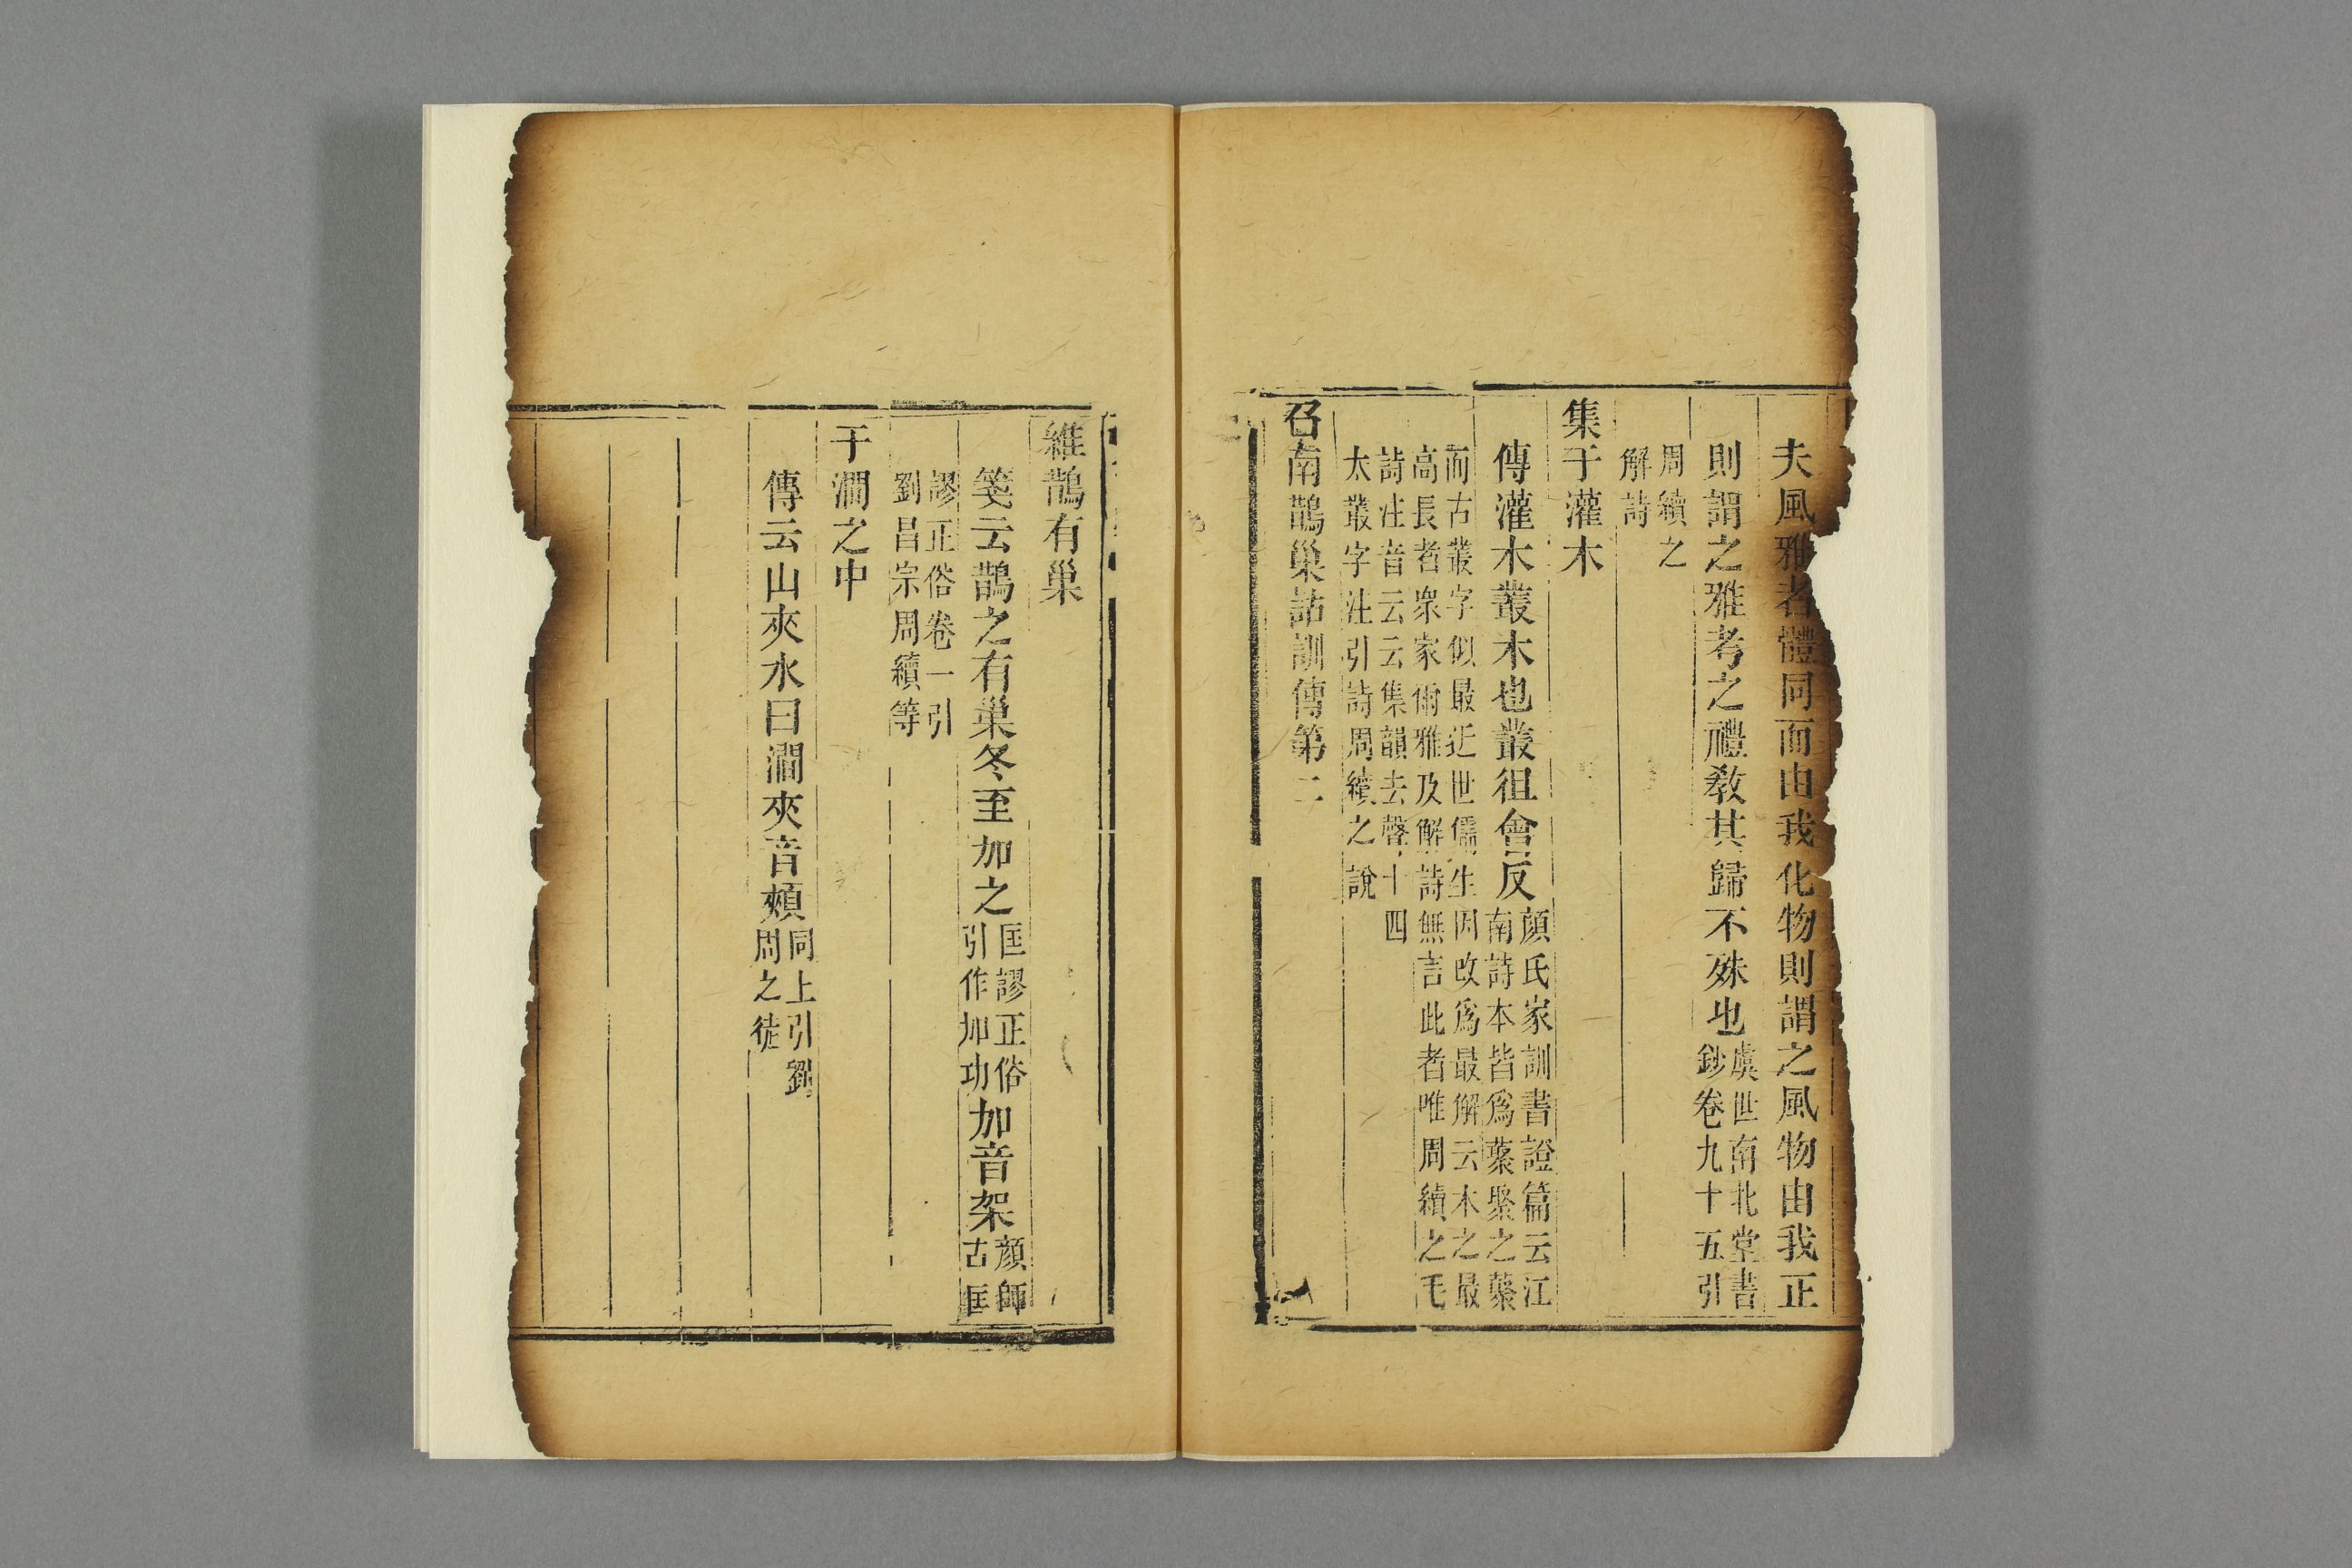 夫風雅者體同而由我化物則謂之風物由我正
則謂之雅考之禮教其歸不殊也虞世南北堂書
鈔卷九十五引
周續之
解詩
集于灌木
傳灌木叢木也叢徂會反顏氏家訓書證篇云江
南詩本皆爲藂聚之藂
而古叢字似最近世儒生因改爲最解云木之最
高長者衆家爾雅及解詩無言此者唯周續之毛
詩注音云云集韻去聲十四
太叢字注引詩周續之說
召南鵲巢詁訓傳第二
維鵲有巢
箋云鵲之有巢冬至加之匡謬正俗
引作加功加音架顏師
古匡
謬正俗卷一引
劉昌宗周續等
于澗之中
傳云山夾水曰澗夾音頰同上引劉
周之徒